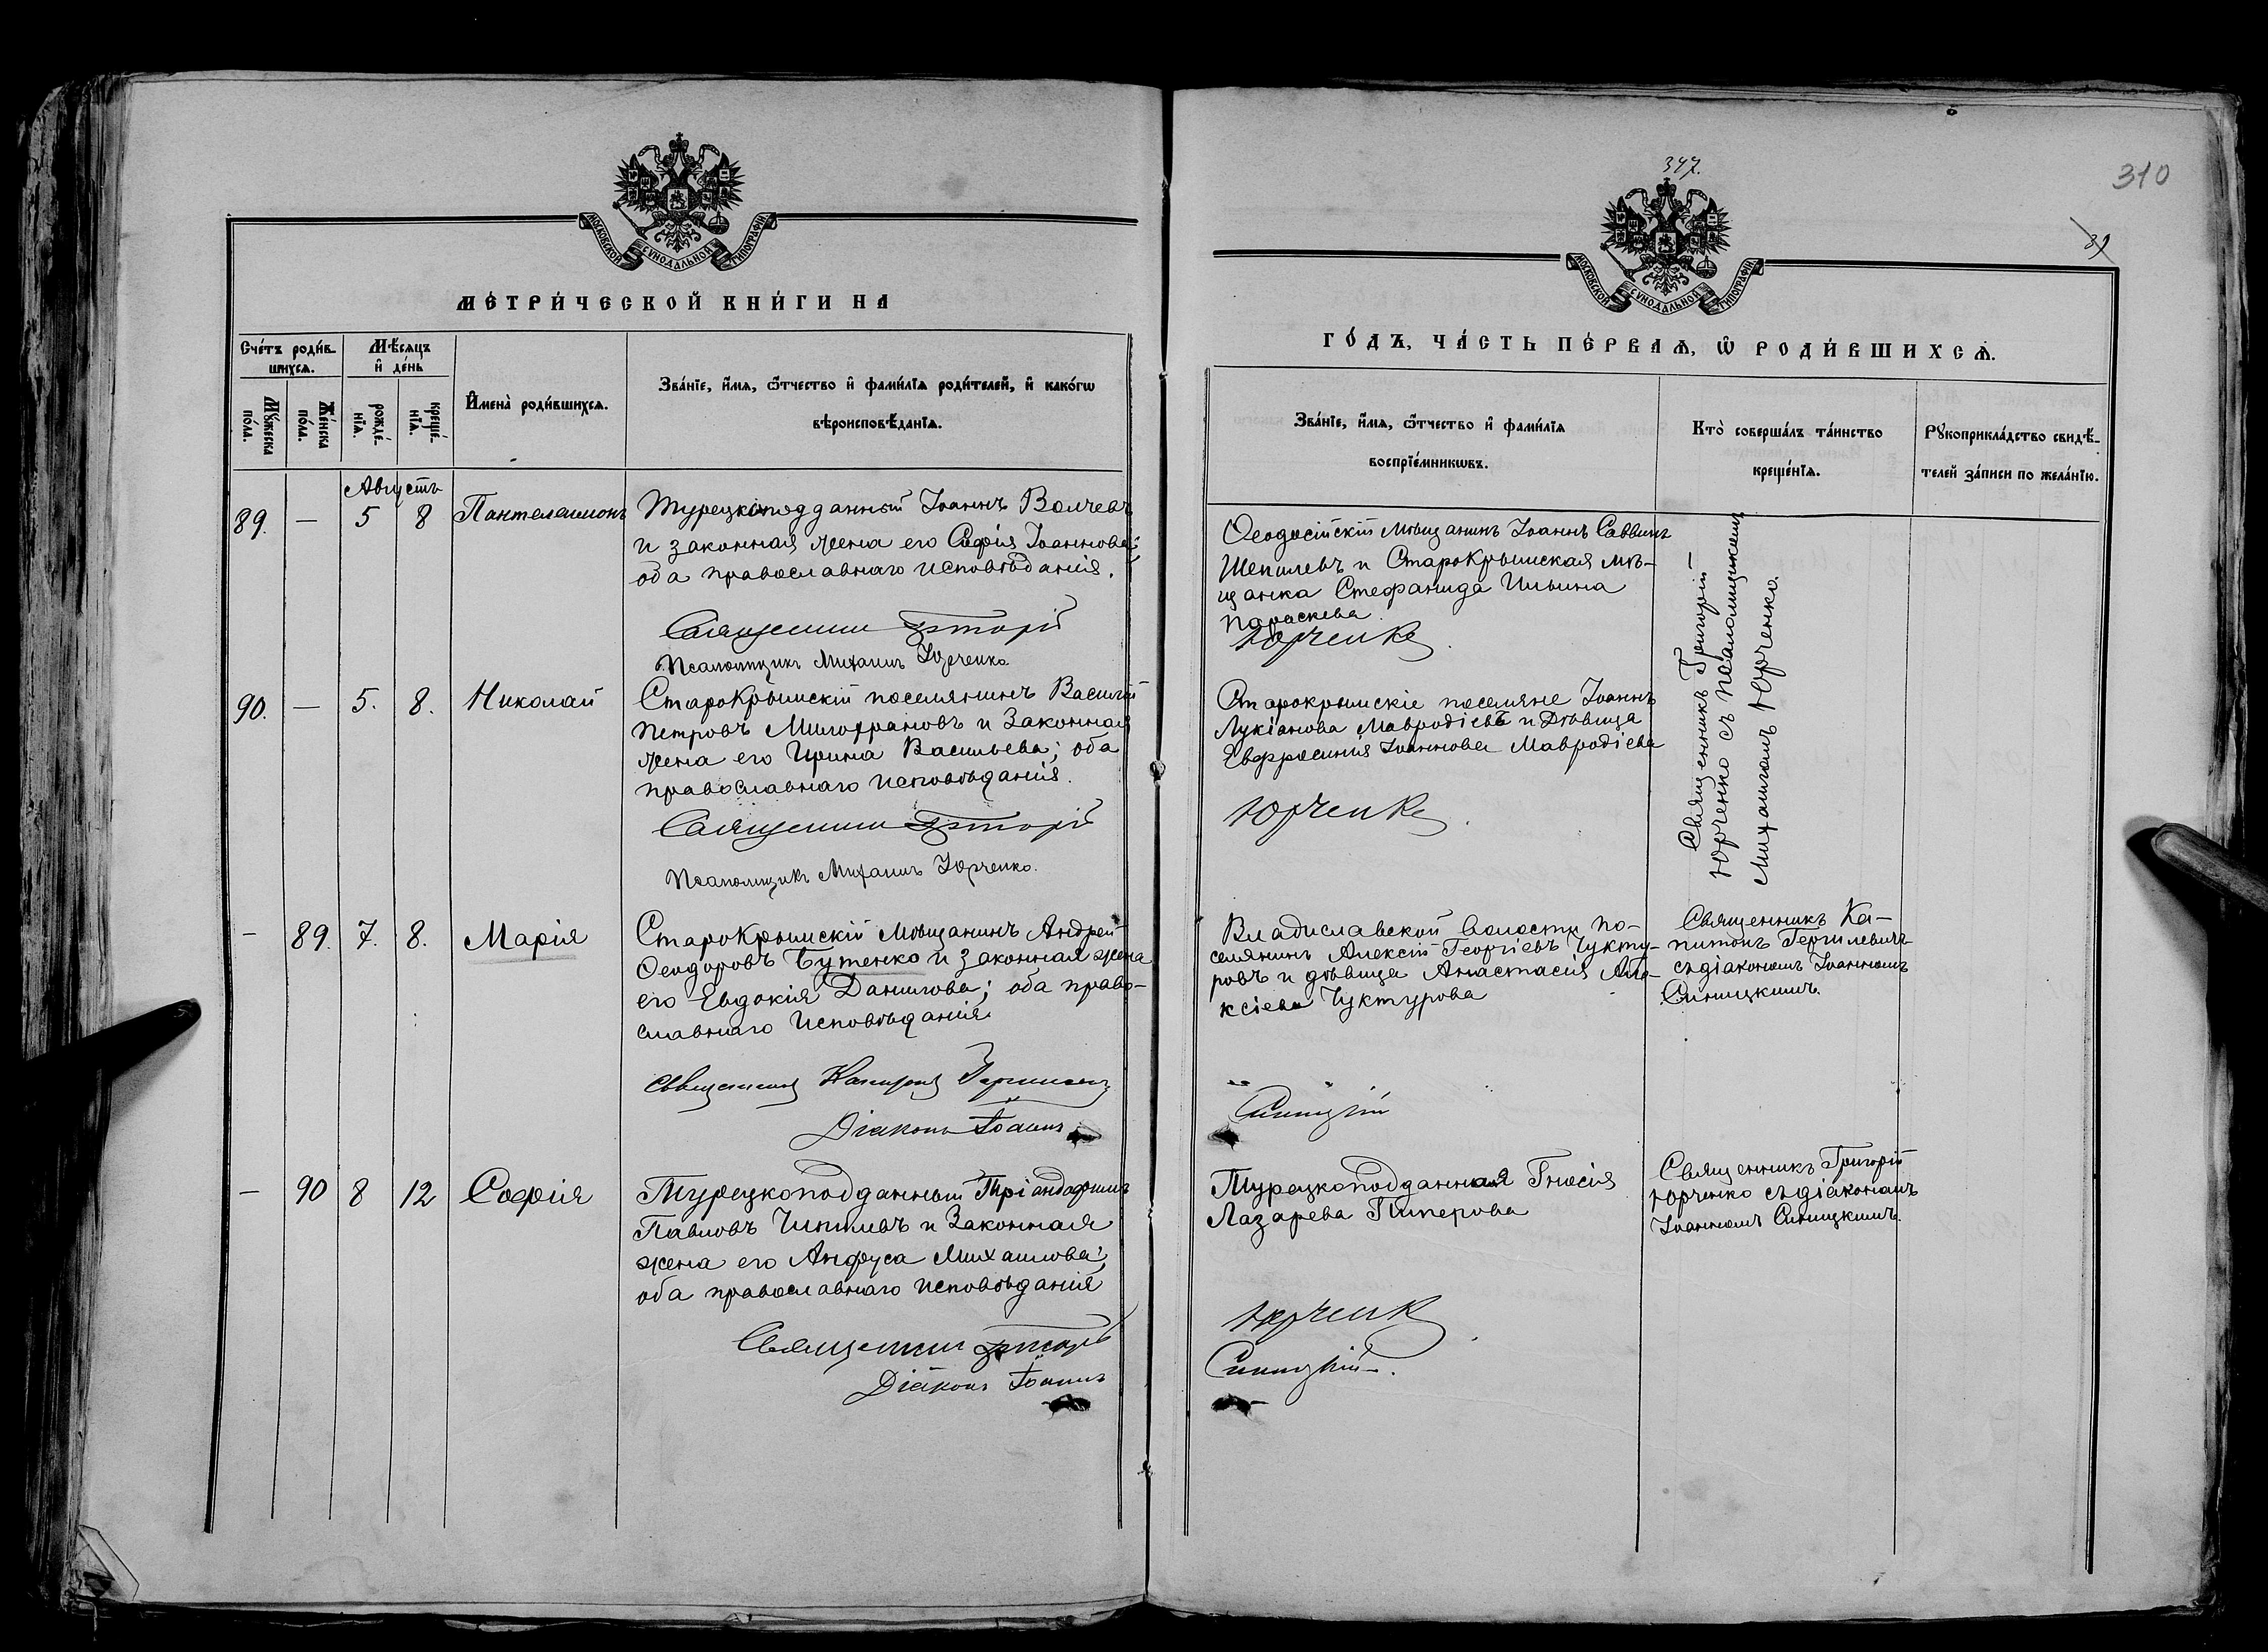 МОСКОВСКОЙ СѴНОДАЛЬНОЙ ТИПОГРАФІИ
МЕТРИЧЕСКОЙ КНИГИ НА
Счетъ родив-
шихся.
Мѣсяцъ
и день
Мужеска
пола.
Женска
пола.
рожде-
нія.
креще-
нія.
Имена родившихся.
Званіе, имя, отчество и фамилія родителей, и какого
вѣроисповѣданія.
Августъ
89. — 5 8 Пантелеимонъ
Турецкоподданный Іоаннъ Волчевъ
и законная жена его Софія Іоаннова;
оба православнаго исповѣданія.
Священник Григорій
Псаломщикъ Михаилъ Юрченко
90. — 5. 8. Николай
Старокрымскій поселянинъ Василій
Петровъ Милофрановъ и законная
жена его Ирина Васильева; оба
православнаго исповѣданія.
Священник Григорій
Псаломщикъ Михаилъ Юрченко.
— 89. 7. 8. Марія
Старокрымскій мѣщанинъ Андрей
Ѳеодоровъ Бутенко и законная жена
его Евдокія Данилова; оба право-
славнаго исповѣданія
Священник Капитон
Діаконъ Іоаннъ
— 90 8 12 Софія
Турецкоподданный Тріандафилъ
Павловъ Чипчивъ и законная
жена его Анфуса Михаилова;
оба православнаго исповѣданія
Священник Григорій
Діаконъ Іоаннъ
347.
310
39
МОСКОВСКОЙ СѴНОДАЛЬНОЙ ТИПОГРАФІИ
ГОДЪ, ЧАСТЬ ПЕРВАЯ, Ѿ РОДИВШИХСЯ.
Званіе, имя, отчество и фамилія
воспріемниковъ.
Кто совершалъ таинство
крещенія.
Рукоприкладство свидѣ-
телей записи по желанію.
Ѳеодосійскій мѣщанинъ Іоаннъ Саввинъ
Шепилевъ и Старокрымская мѣ-
щанка Стефанида Ильина
Параскева
Юрченко
Старокрымскіе поселяне Іоаннъ
Лукіанова Мавродіевъ и дѣвица
Евфросинія Іоаннова Мавродіева
Юрченко
Священникъ Григорій
Юрченко съ псаломщикомъ
Михаиломъ Юрченко.
Владиславской волости по-
селянинъ Алексій Георгіевъ Чукту-
ровъ и дѣвица Анастасія Але-
ксіева Чуктурова
Синицкій
Священникъ Ка-
питонъ Гергилевичъ
съ діакономъ Іоанномъ
Синицкимъ.
Турецкоподданная Гносія
Лазарева Пиперова
Юрченко
Синицкій.
Священникъ Григорій
Юрченко съ діакономъ
Іоанномъ Синицкимъ.